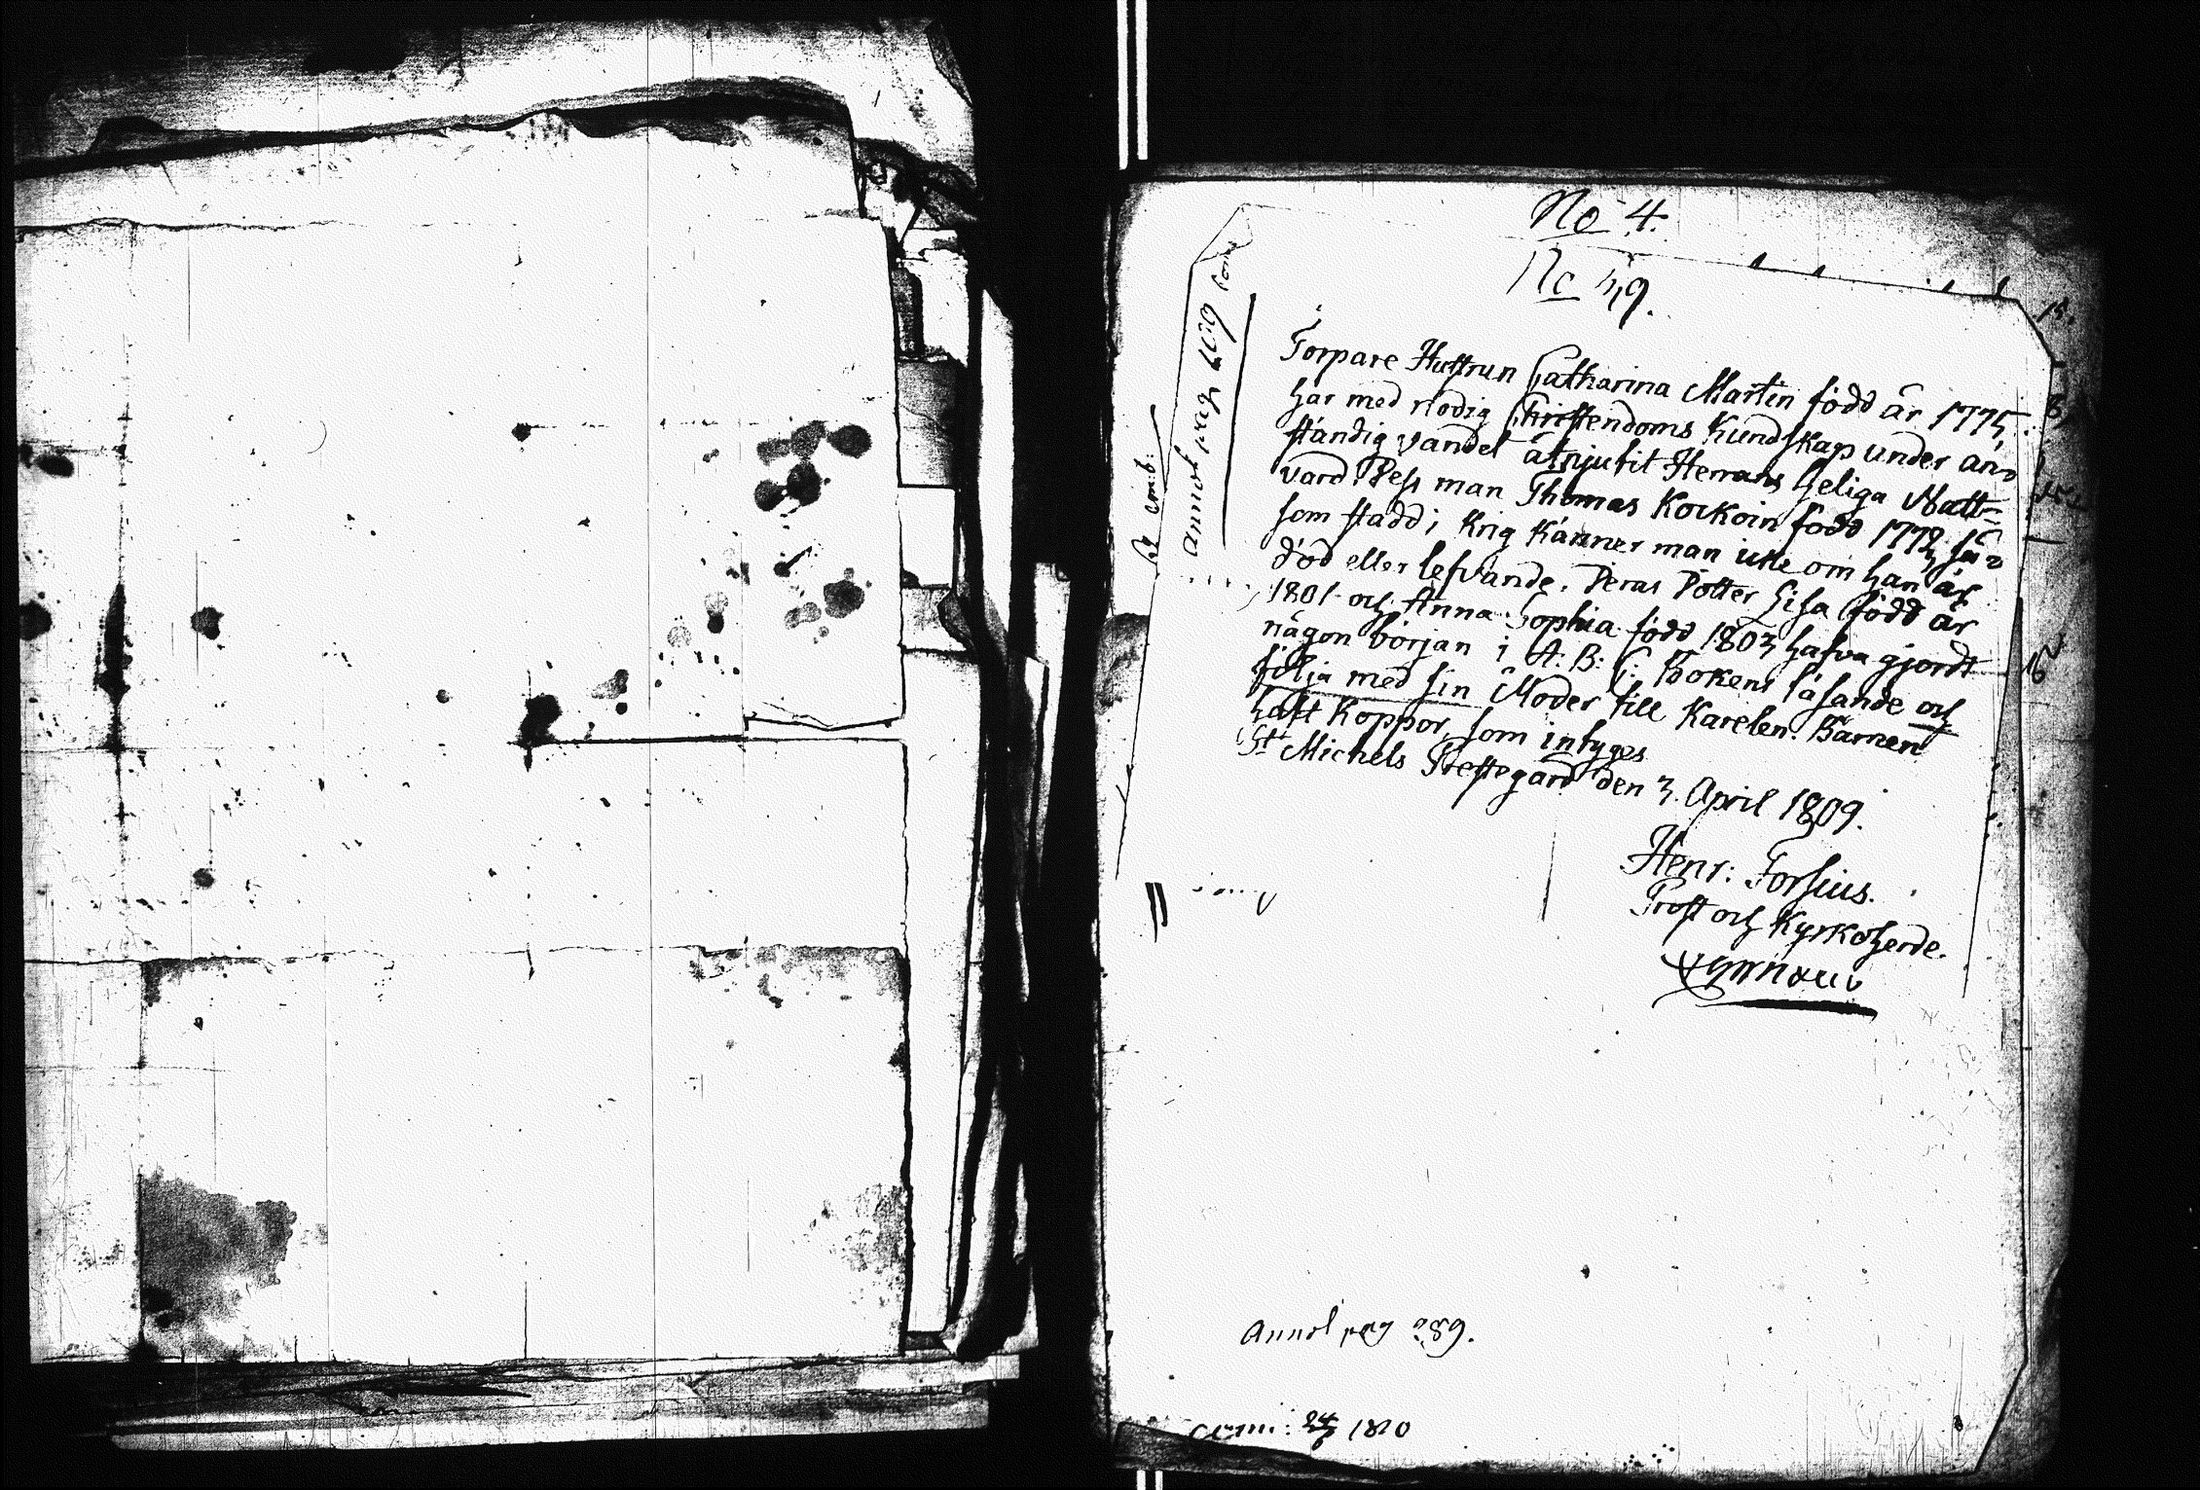 No 4.
No 49.
Torpare Hustrun Catharina Martin född år 1775.
har med nödig Christendoms Kundskap under an-
ständig vandel åtnjutit Herrans Heliga Natt-
vard. Dess man Thomas Korkoin född 1773, så-
som stadd i Krig känner man icke om han är
död eller lefvande. Deras Dötter Lisa född år
1801 och Anna Sophia född 1803, hafva gjordt
någon början i A: B: C: Bokens läsande och
följa med sin Moder till Karelen. Barnen
haft Koppor, som intyges
St Michels Prestegård den 3. April 1809.
Henr: Forsius.
Prost och Kyrkoherde.
Annot pag
Annot pag 289.
comm: 24/6 1810